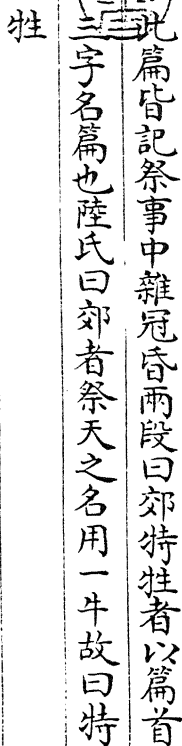 此篇皆記祭事中雜冠昏兩段曰郊特牲者以篇首
三字名篇也陸氏曰郊者祭天之名用一牛故曰特
牲